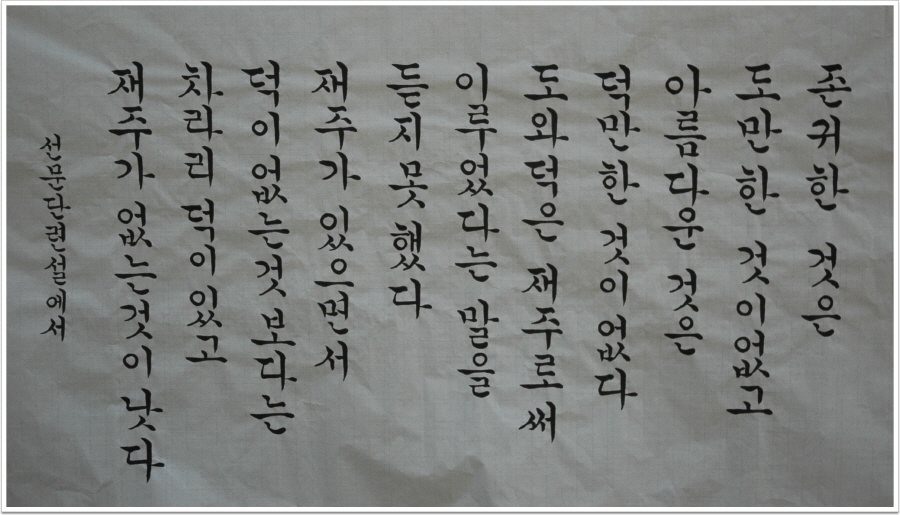 존귀한 것은
도만한 것이없고
아름다운 것은
덕만한 것이없다
도와덕은 재주로써
이루었다는 말을
듣지못했다
재주가 있으면서
덕이없는것 보다는
차라리 덕이있고
재주가 없는것이 낫다
선문단련설에서